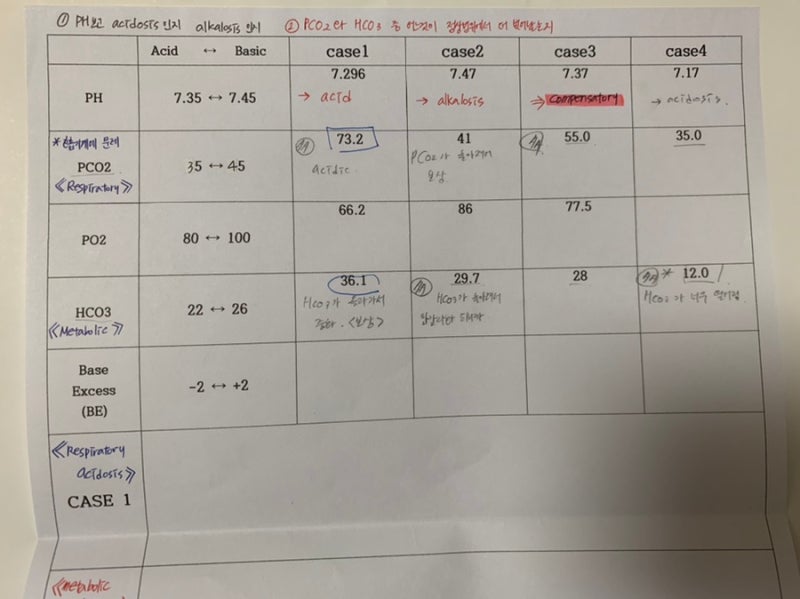 ① PH보고 acidosis인지 alkalosis인지 ② PCO2와 HCO3 중 어떤것이 정상범위에서 더 벗어났는지
Acid ↔ Basic case1 case2 case3 case4
PH 7.35 ↔ 7.45 7.296 7.47 7.37 7.17
→ acid → alkalosis ⇒ compensatory → acidosis.
PCO2 35 ↔ 45 73.2 41 55.0 35.0
《Respiratory》 acidic. PCO2가
보상
PO2 80 ↔ 100 66.2 86 77.5
HCO3 22 ↔ 26 36.1 29.7 28 * 12.0
《Metabolic》 HCO3가 HCO3가 HCO3가 너무
<보상>
Base
Excess
(BE) -2 ↔ +2
《Respiratory
acidosis》
CASE 1
《metabolic